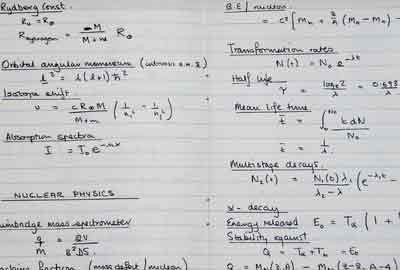 Rydberg Const.
R₀ = R∞
R hydrogen = M / (M + m) R∞
Orbital angular momentum
l² = l(l+1)ħ²
Isotope shift
ν = cR∞M / (M+m) (1/n₁² - 1/n₂²)
Absorption spectra
I = I₀e^-nx
NUCLEAR PHYSICS
Bainbridge mass spectrometer
q/M = 2V / B²DS
fraction (mass defect/nucleon)
B.E / nucleon
= c² [Mn + Z/A (MH - Mn) -
Transformation rates
N(t) = N₀ e^-λt
Half life
τ = loge2 / λ = 0.693 / λ
Mean life time
t̄ = ∫₀^N₀ t dN / N₀
t̄ = 1/λ
Multistage decays.
N₂(t) = N₁(0) λ₁ / (λ₂ - λ) (e^-λ₁t -
α - decay
Energy released E₀ = Tα (1 +
Stability against
Q = Tα + Tb = E₀
Q = M (Z,A) - M (Z-2, A-4)